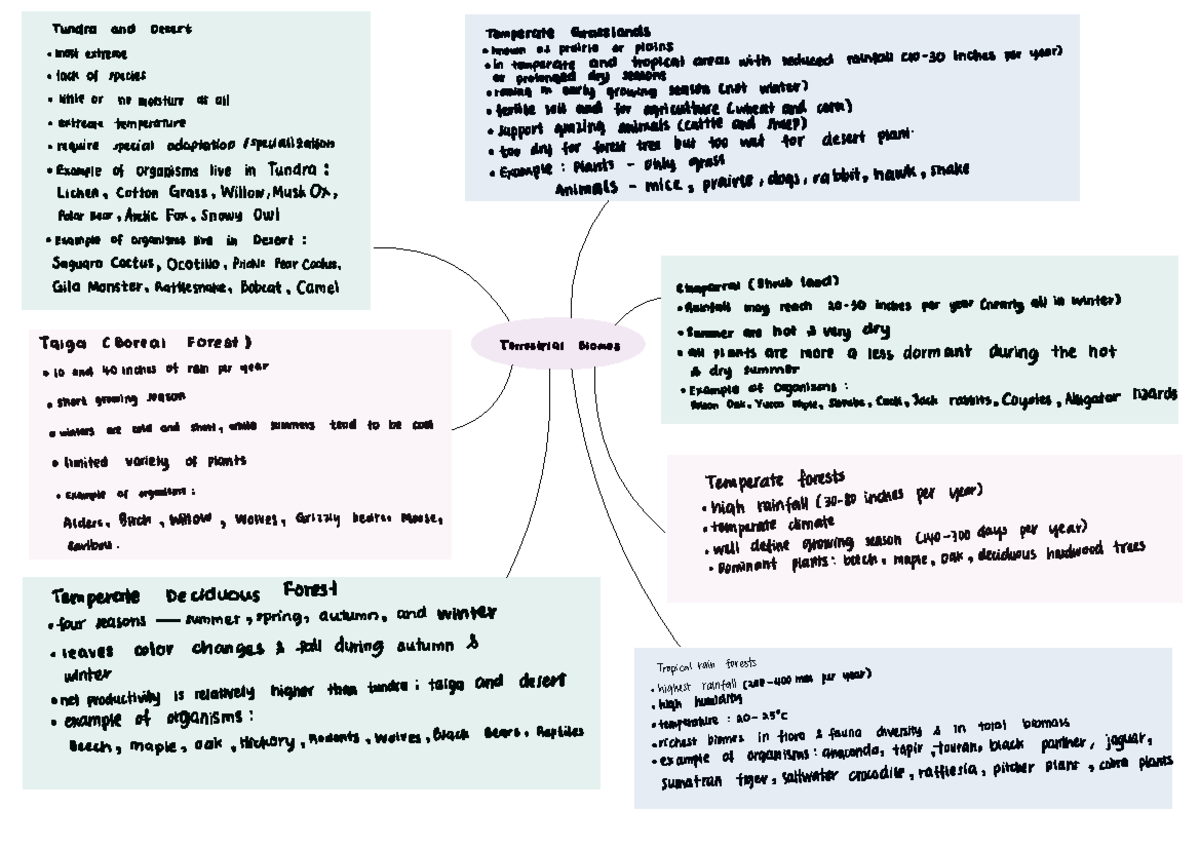 Tundra and Desert
• most extreme
• lack of species
• little or no moisture at all
• extreme temperature
• require special adaptation / specialization
• Example of organisms live in Tundra :
Lichen, Cotton Grass, Willow, Musk Ox,
Polar Bear, Arctic Fox, Snowy Owl
• Example of organisms live in Desert :
Saguaro Cactus, Ocotillo, Prickle Pear Cactus,
Gila Monster, Rattlesnake, Bobcat, Camel
Temperate Grasslands
• known as prairie or plains
• in temperate and tropical areas with reduced rainfall (10-30 inches per year)
or prolonged dry seasons
• in early growing season (not winter)
• fertile soil and for agriculture (wheat and corn)
• support grazing animals (cattle and sheep)
• too dry for forest tree but too wet for desert plant.
• Example : Plants - only grass
Animals - mice, prairie, dogs, rabbit, hawk, snake
Terrestrial Biomes
Chaparral (Shrub land)
• Rainfall may reach 20-30 inches per year (nearly all in winter)
• Summer are hot & very dry
• all plants are more a less dormant during the hot
& dry summer
• Example of organisms :
Oak, Yucca, Shrubs, Cacti, Jack rabbits, Coyotes, Alligator lizards
Taiga (Boreal Forest)
• 10 and 40 inches of rain per year
• short growing season
• winters are cold and short, while summers tend to be cool
• limited variety of plants
• Example of organisms :
Alders, Birch, Willow, Wolves, Grizzly bears, Moose,
Caribou.
Temperate forests
• high rainfall (30-80 inches per year)
• temperate climate
• well define growing season (140-300 days per year)
• Dominant plants : beech, maple, oak, deciduous hardwood trees
Temperate Deciduous Forest
• four seasons — summer, spring, autumn, and winter
• leaves color changes & fall during autumn &
winter
• net productivity is relatively higher than tundra ; taiga and desert
• example of organisms :
Beech, maple, oak, Hickory, Rodents, Wolves, Black Bears, Reptiles
Tropical rain forests
• highest rainfall (200-400 mm per year)
• high humidity
• temperature : 20-25°c
• richest biomes in flora & fauna diversity & in total biomass
• example of organisms : anaconda, tapir, touran, black panther, jaguar,
Sumatran tiger, saltwater crocodile, rafflesia, pitcher plant, cobra plants